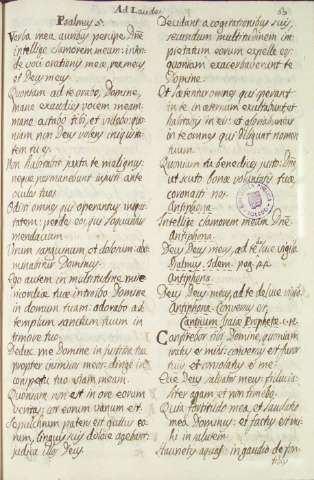 Ad Laudes
53
Psalmus 5.
Verba mea auribus percipe Dñe
intellige clamorem meum: inten-
de voci orationis meæ, rex meus
et Deus meus
Quoniam ad te orabo, Domine,
mane exaudies vocem meam
mane astabo tibi, et videbo: quo-
niam non Deus volens iniquita-
tem tu es.
Non habitabit juxta te malignus:
neque permanebunt injusti ante
oculos tuos
Odisti omnes qui operantur iniqui-
tatem: perdes eos, qui loquuntur
mendacium
Virum sanguinum et dolosum abo-
minabitur Dominus.
Ego autem in multitudine mise-
ricordiæ tuæ introibo Domine
in domum tuam: adorabo ad
templum sanctum tuum in
timore tuo.
Deduc me Domine in justitia tua
propter inimicos meos: dirige in
conspectu tuo viam meam.
Quoniam non est in ore eorum
veritas: cor eorum vanum est.
Sepulchrum patens est guttur eo-
rum, linguis suis dolose agebant:
judica illos Deus.
Decidant a cogitationibus suis,
secundum multitudinem im-
pietatum eorum expelle eos,
quoniam exacerbaverunt te
Domine.
Et lætentur omnes qui sperant
in te in æternum exultabunt et
habitabis in eis: et gloriabuntur
in te omnes qui diligunt nomen
tuum.
Quoniam tu benedices justo: Dñe
ut scuto bonæ voluntatis tuæ
coronasti nos.
Antiphona.
Intellige clamorem meum Dñe
Antiphona.
Deus Deus meus, ad te de luce vigilo
Psalmus. Idem. pag. 22
Antiphona.
Deus Deus meus, ad te de luce vigilo.
Antiphona. Conversus est
Canticum Isaiæ Prophetæ
Confitebor tibi Domine, quoniam
iratus es mihi: conversus est furor
tuus et consolatus es me.
Ecce Deus salvator meus: fiducia-
liter agam et non timebo.
Quia fortitudo mea, et laus mea
Dominus: et factus est mi-
hi in salutem.
Haurietis aquas in gaudio de fon-
tibus